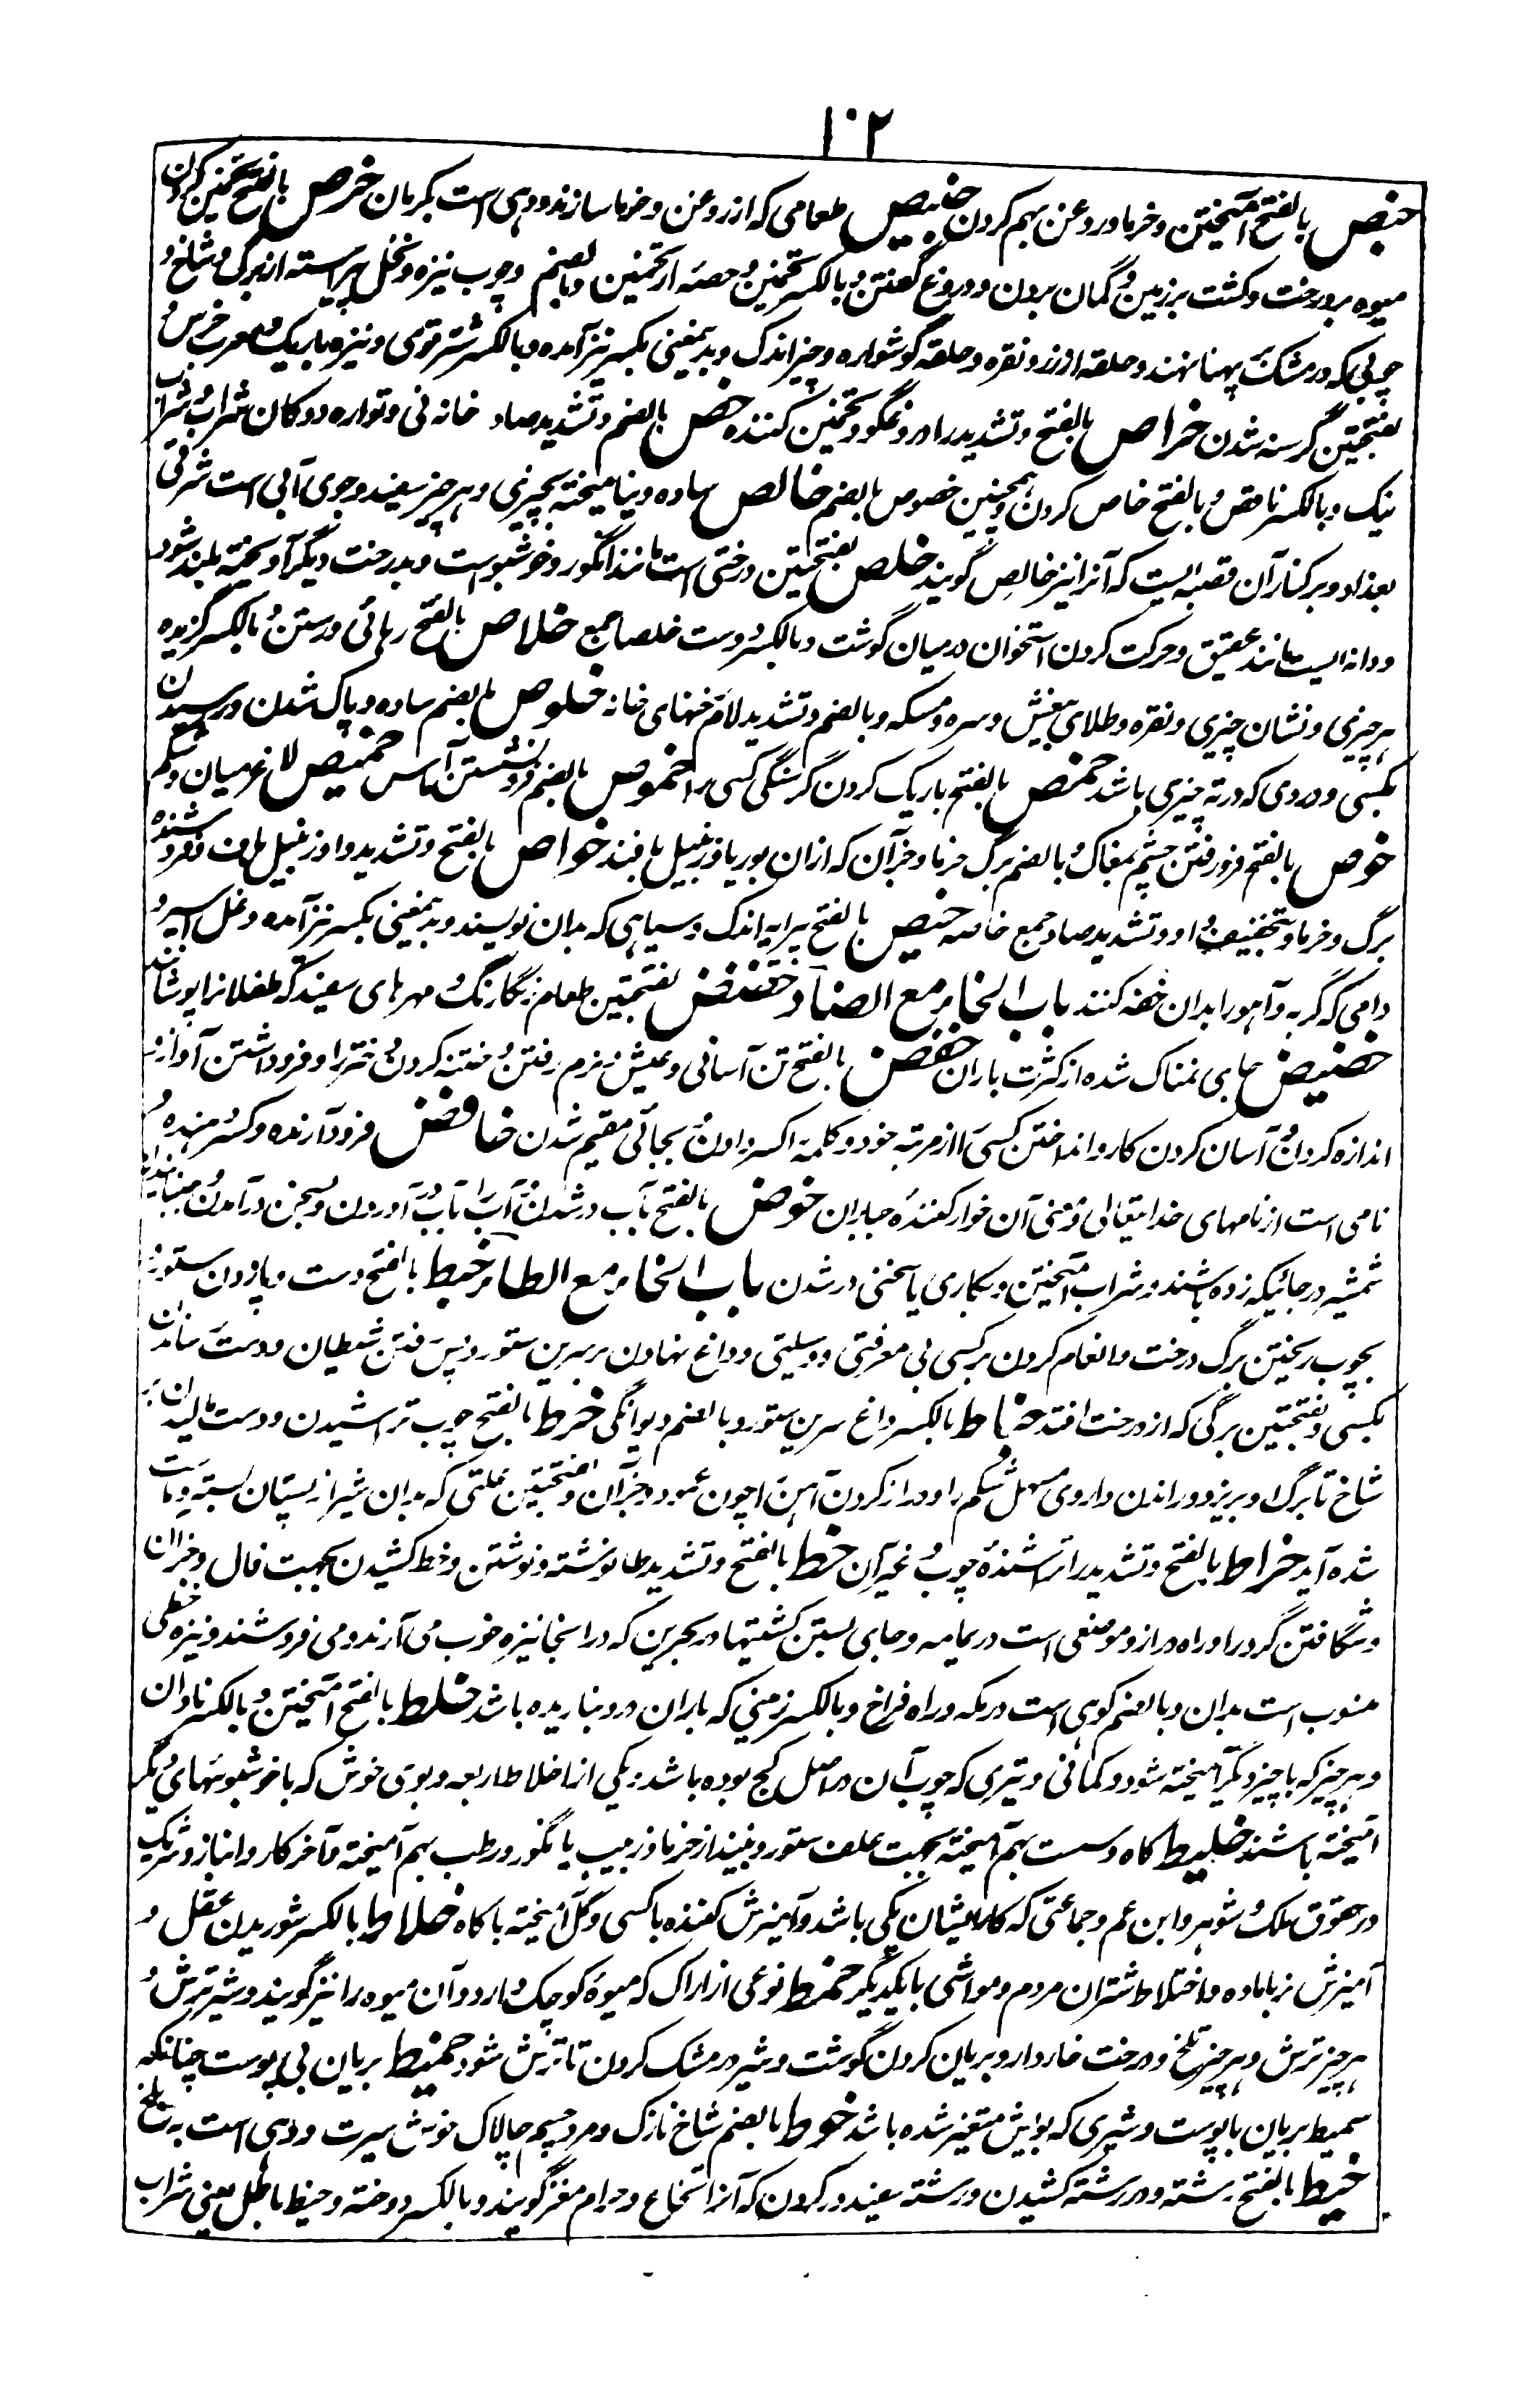 ۱۰۲
خبص بالفتح آمیختن و خرما و روغن بهم کردن خبیص طعامی که از روغن و خرما سازند و دهی است بکرمان خرص بالفتح تخمین کردن
میوه بر درخت و کشت بر زمین و گمان بردن و دروغ گفتن و بالکسر تخمین و حصه از تخمین و بالضم و چوب نیزه و نخل پیراسته از برگ و شاخ و
چوبی که در مشک پهنا نهند و حلقه از زر و نقره و حلقه گوشواره و چیز اندک و بدینمعنی بکسر نیز آمده و بالکسر شتر قوی و نیزه باریک و معرب خرس و
بفتحتین گرسنه شدن خراص بالفتح و تشدید را دروغگو و تخمین کننده خص بالضم و تشدید صاد خانه نی و تواره و دوکان شراب و شراب
نیک و بالکسر ناقص و بالفتح خاص کردن و همچنین خصوص بالضم خالص ساده و نیامیخته بچیزی و هر چیز سفید و جوی آبی است شرقی
بغداد و بر کنار آن قصبه ایست که آنرا نیز خالص گویند خلص بفتحتین درختی است مانند انگور و خوشبو است و بدرخت دیگر آویخته بلند شود
و دانه ایست مانند عقیق و حرکت کردن استخوان در میان گوشت و بالکسر دوست خلصا جمع خلاص بالفتح رهائی و رستن و بالکسر گزیده
هر چیزی و نشان چیزی و نقره و طلای بیغش و سره و مسکه و بالضم و تشدید لام خنهای خانه خلوص بالضم ساده و پاک شدن و رسیدن
بکسی و دردی که در ته چیزی باشد خمص بالفتح باریک کردن گرسنگی کسی را خموص بالضم فرونشستن آماس خمیص لاغر میان و شکم
خوص بالفتح فرو رفتن چشم بمغاک و بالضم برگ خرما و جز آن که ازان بوریا و زنبیل بافند خواص بالفتح و تشدید واو زنبیل باف و فروشنده
برگ و خرما و بتخفیف واو و تشدید صاد جمع خاصه خیص بالفتح پیرایه اندک و سیاهی که بدان نویسند و بدینمعنی بکسر نیز آمده و غل اسیر و
دامی که گربه و آهو را بدان خفه کنند باب الخاء مع الضاد خضض بفتحتین طعام رنگارنگ و مهرهای سفید که طفلانرا پوشانند
خضیض جای نمناک شده از کثرت باران خفض بالفتح تن آسانی و عیش و نرم رفتن و ختنه کردن دختر را و فرو داشتن آواز و
اندازه کردن و آسان کردن کار و انداختن کسی را از مرتبه خود و کلمه را کسر دادن و بجائی مقیم شدن خافض فرود آرنده و کسر دهنده و
نامی است از نامهای خدایتعالی و معنی آن خوار کننده جباران خوض بالفتح بآب در شدن و آب را بآب آوردن و سخن درآمدن و جنبانیدن
شمشیر در جائیکه زده باشند و شراب آمیختن و بکاری یا سخنی در شدن باب الخاء مع الطاء خبط بالفتح دست و پا زدن ستور و
بچوب ریختن برگ درخت و انعام کردن بر کسی بی معرفتی و وسیلتی و داغ نهادن بر سرین ستور و پس رفتن شیطان و دست رساندن
بکسی و بفتحتین برگی که از درخت افتد خباط بالکسر داغ سرین ستور و بالضم دیوانگی خرط بالفتح چوب تراشیدن و دست مالیدن بر
شاخ تا برگ او بریزد و راندن داروی مسهل شکم را و دراز کردن آهن را چون عمود و جز آن و بفتحتین علتی که بدان شیر از پستان بسته و ماست
شده آید خراط بالفتح و تشدید را تراشندهٔ چوب و غیر آن خط بالفتح و تشدید طا نوشته و نوشتن و خط کشیدن بجهت فال و جز آن
و شگافتن گرد را و راه دراز و موضعی است در یمامه و جای بستن کشتیها در بحرین که در انجا نیزه خوب می آرند و می فروشند و نیزه خطی
منسوب است بدان و بالضم کوهی است در مکه و راه فراخ و بالکسر زمینی که باران درو نباریده باشد خلط بالفتح آمیختن و بالکسر نادان
و هر چیز که با چیز دیگر آمیخته شود و کمانی و تیری که چوب آن در اصل کج بوده باشد و یکی از اخلاط اربعه و بوی خوش که با خوشبوئیهای دیگر
آمیخته باشند خلیط کاه و سست بهم آمیخته بجهت علف ستور و نبیذ از خرما و زبیب یا انگور و رطب بهم آمیخته و آخر کار و انباز و شریک
در حقوق ملک و شوهر و ابن عم و جماعتی که کار ایشان یکی باشد و آمیزش کننده با کسی و گل آمیخته با کاه خلاط بالکسر شوریدن عقل و
آمیزش نر با ماده و اختلاط شتران مردم و مواشی با یکدیگر خمط نوعی از اراک که میوهٔ کوچک دارد و آن میوه را نیز گویند و شیر ترش و
هر چیز ترش و هر چیز تلخ و درخت خاردار و بریان کردن گوشت و شیر در مشک کردن تا ترش شود خمیط بریان بی پوست چنانکه
سمیط بریان با پوست و شیری که بویش متغیر شده باشد خوط بالضم شاخ نازک و مرد جسیم چالاک خوش سیرت و دهی است به بلخ
خیط بالفتح رشته و در رشته کشیدن و رشته سفید در گردن که آنرا نخاع و حرام مغز گویند و بالکسر دوخته و خیط باطل یعنی شراب